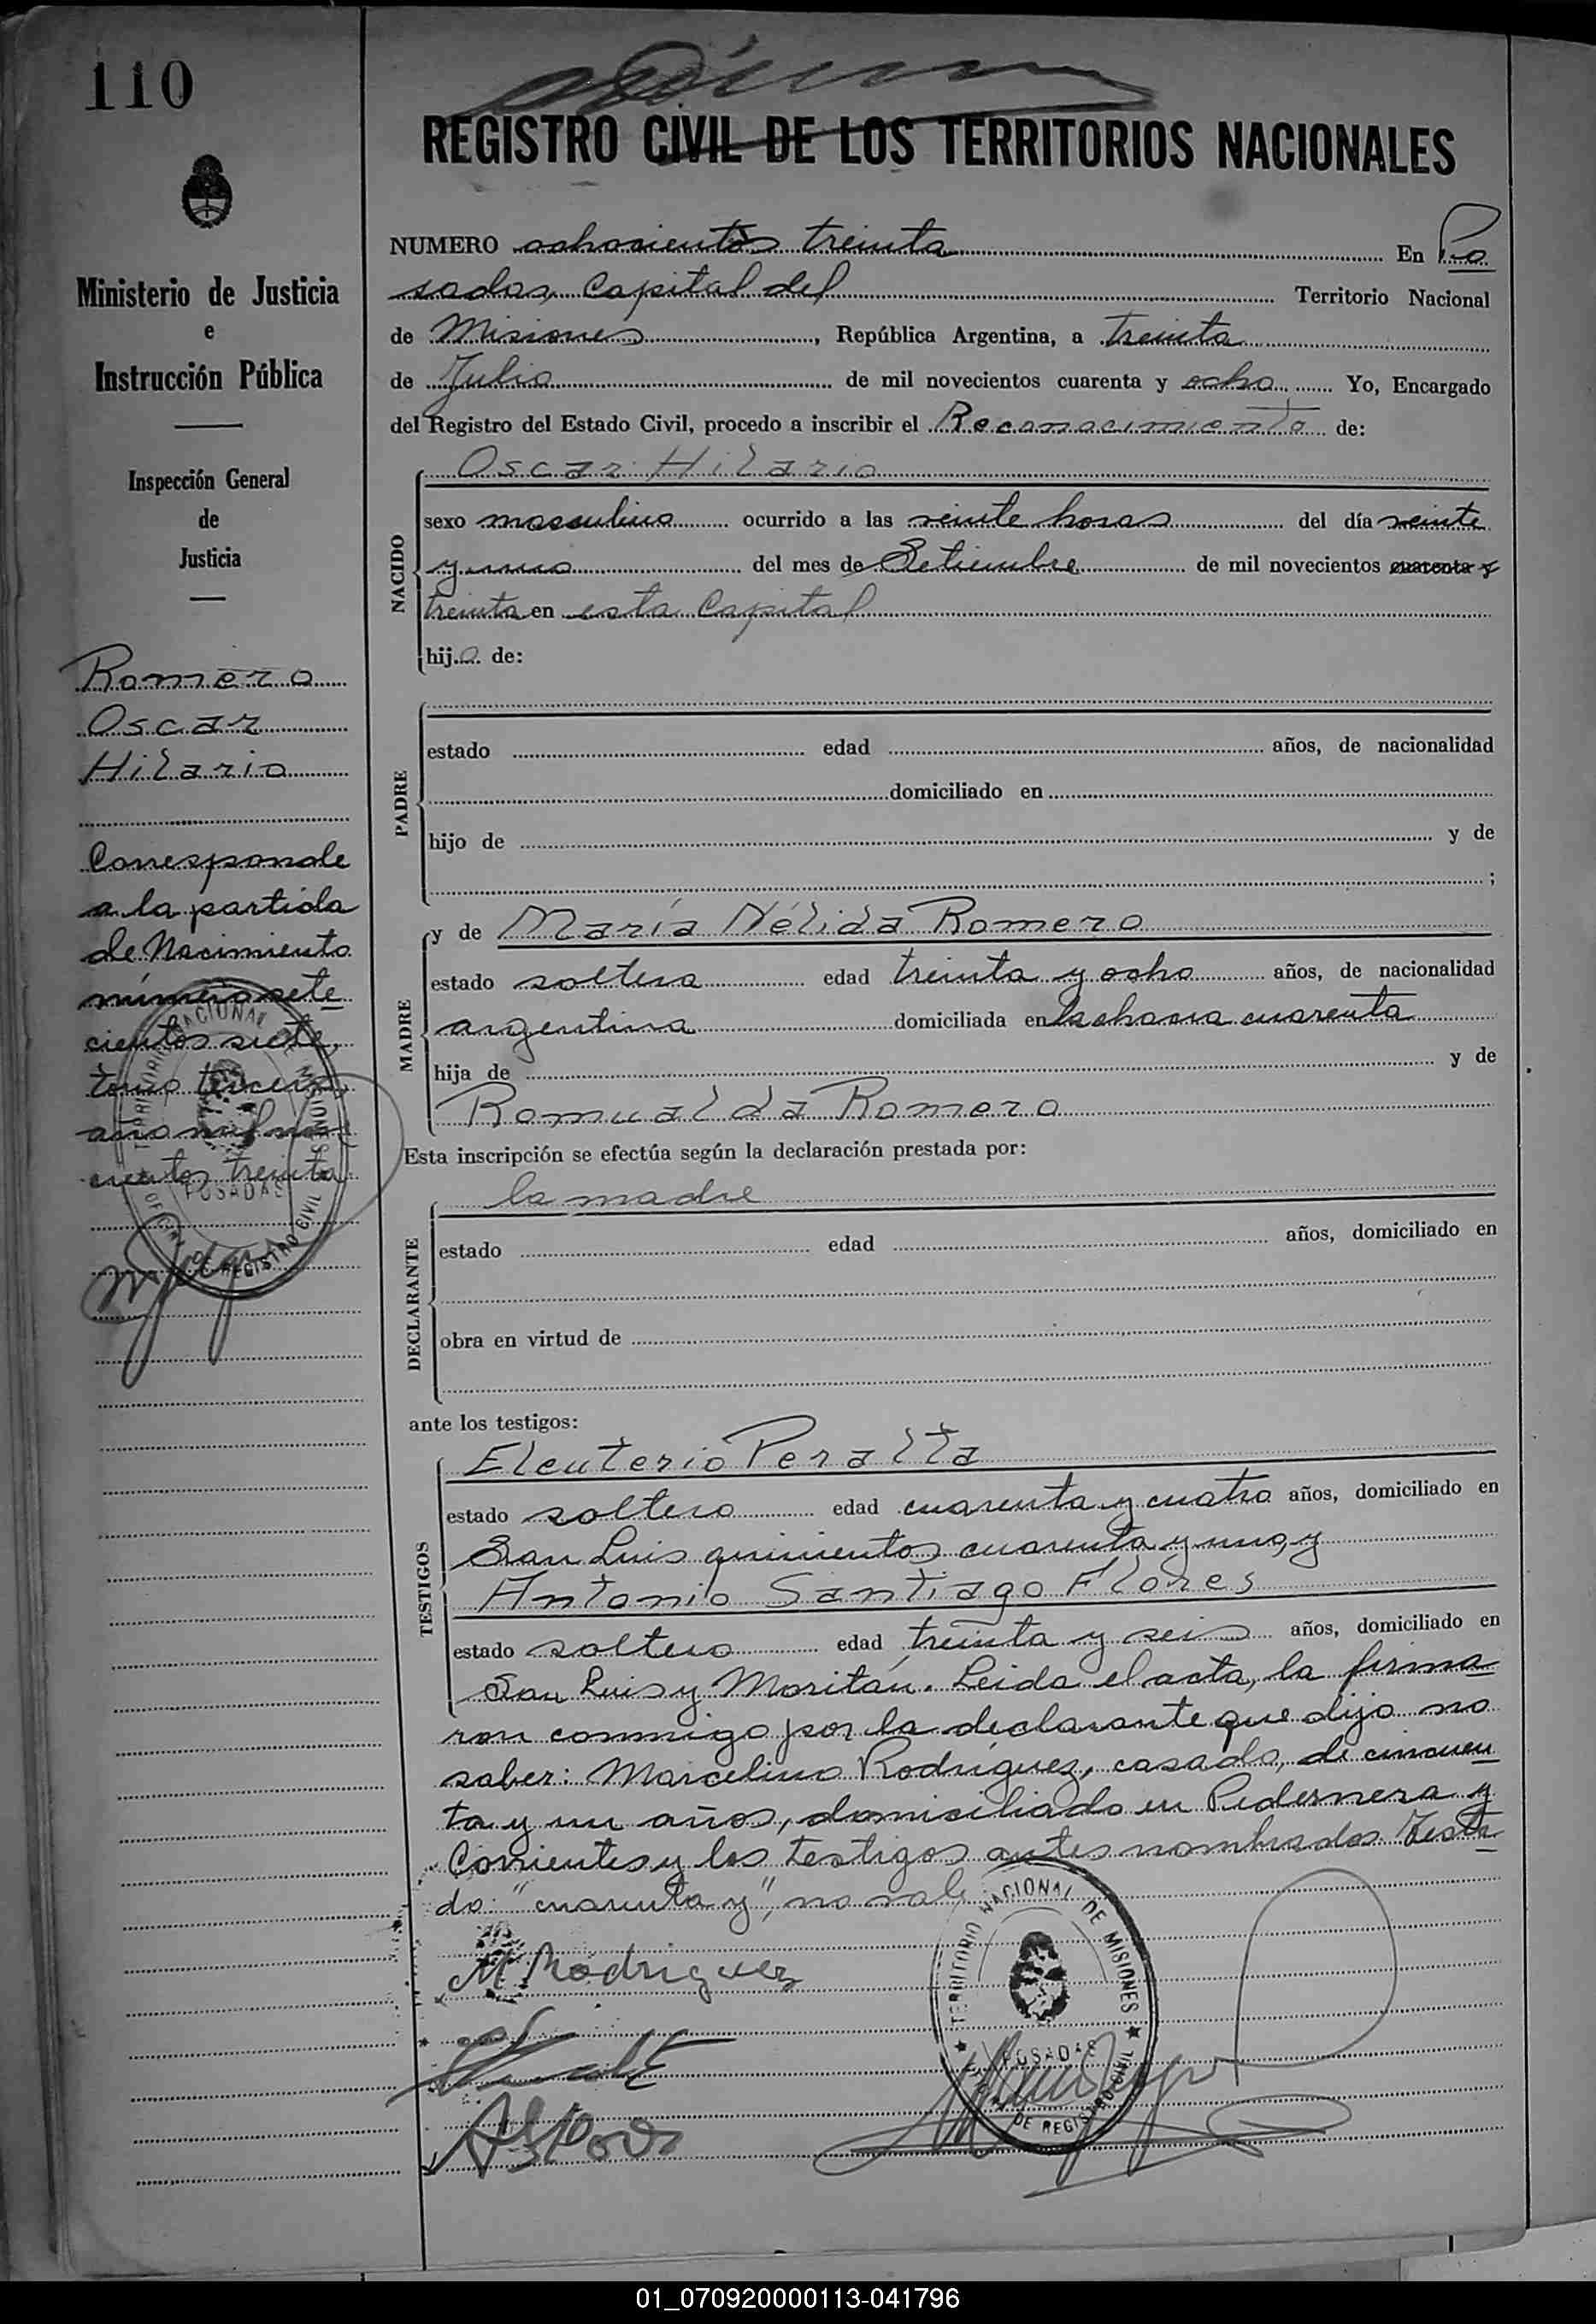 110
REGISTRO CIVIL DE LOS TERRITORIOS NACIONALES
Ministerio de Justicia
e
Instrucción Pública
Inspección General
de
Justicia
Romero
Oscar
Hilario
Corresponde
a la partida
de Nacimiento
número sete
cientos siete,
tomo tercero,
año mil nove
cientos treinta
NUMERO ochocientos treinta En Po
sadas, Capital del Territorio Nacional
de Misiones, República Argentina, a treinta
de Julio de mil novecientos cuarenta y ocho Yo, Encargado
del Registro del Estado Civil, procedo a inscribir el Reconocimiento de:
NACIDO
Oscar Hilario
sexo masculino ocurrido a las veinte horas del día veinte
y uno del mes de Setiembre de mil novecientos cuarenta y
treinta en esta Capital
hijo de:
PADRE
estado edad años, de nacionalidad
domiciliado en
hijo de y de
;
MADRE
y de María Nélida Romero
estado soltera edad treinta y ocho años, de nacionalidad
argentina domiciliada en la chacra cuarenta
hija de y de
Romualda Romero
Esta inscripción se efectúa según la declaración prestada por:
DECLARANTE
la madre
estado edad años, domiciliado en
obra en virtud de
ante los testigos:
TESTIGOS
Eleuterio Peralta
estado soltero edad cuarenta y cuatro años, domiciliado en
San Luis quinientos cuarenta y uno, y
Antonio Santiago Flores
estado soltero edad treinta y seis años, domiciliado en
San Luis y Moritán. Leida el acta, la firma
ron conmigo por la declarante que dijo no
saber: Marcelino Rodríguez, casado, de cincuen
ta y un años, domiciliado en Pedernera y
Corrientes y los testigos antes nombrados. Testa
do: "cuarenta y", no vale
M Rodriguez
TERRITORIO NACIONAL DE MISIONES
POSADAS
DE REGISTRO CIVIL
01_070920000113-041796